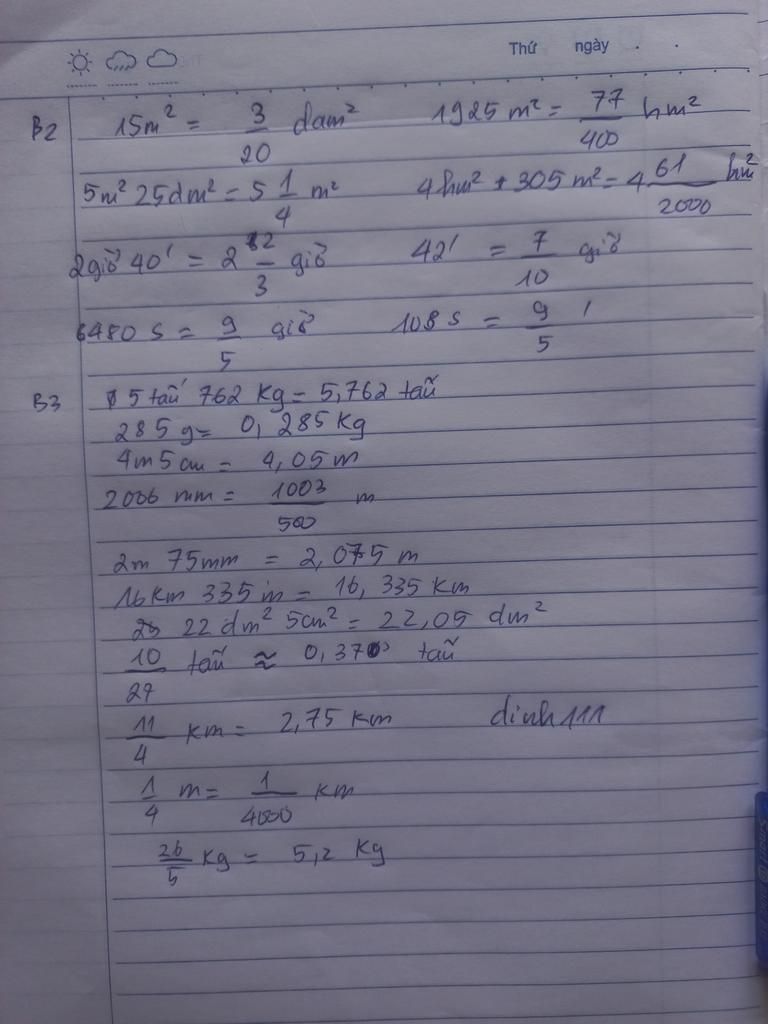 Thứ ngày . .
B2 15m² = 3/20 dam² 1925 m² = 77/400 hm²
5m² 25dm² = 5 1/4 m² 4hm² + 305 m² = 4 61/2000 hm²
2giờ 40' = 2 2/3 giờ 42' = 7/10 giờ
6480 s = 9/5 giờ 108 s = 9/5 '
B3 5 tấn 762 Kg = 5,762 tấn
285 g = 0,285 Kg
4m 5cm = 4,05 m
2006 mm = 1003/500 m
2m 75mm = 2,075 m
16 Km 335 m = 16,335 Km
22 dm² 5cm² = 22,05 dm²
10/27 tấn ≈ 0,370 tấn
11/4 Km = 2,75 Km dinh111
1/4 m = 1/4000 Km
26/5 Kg = 5,2 Kg